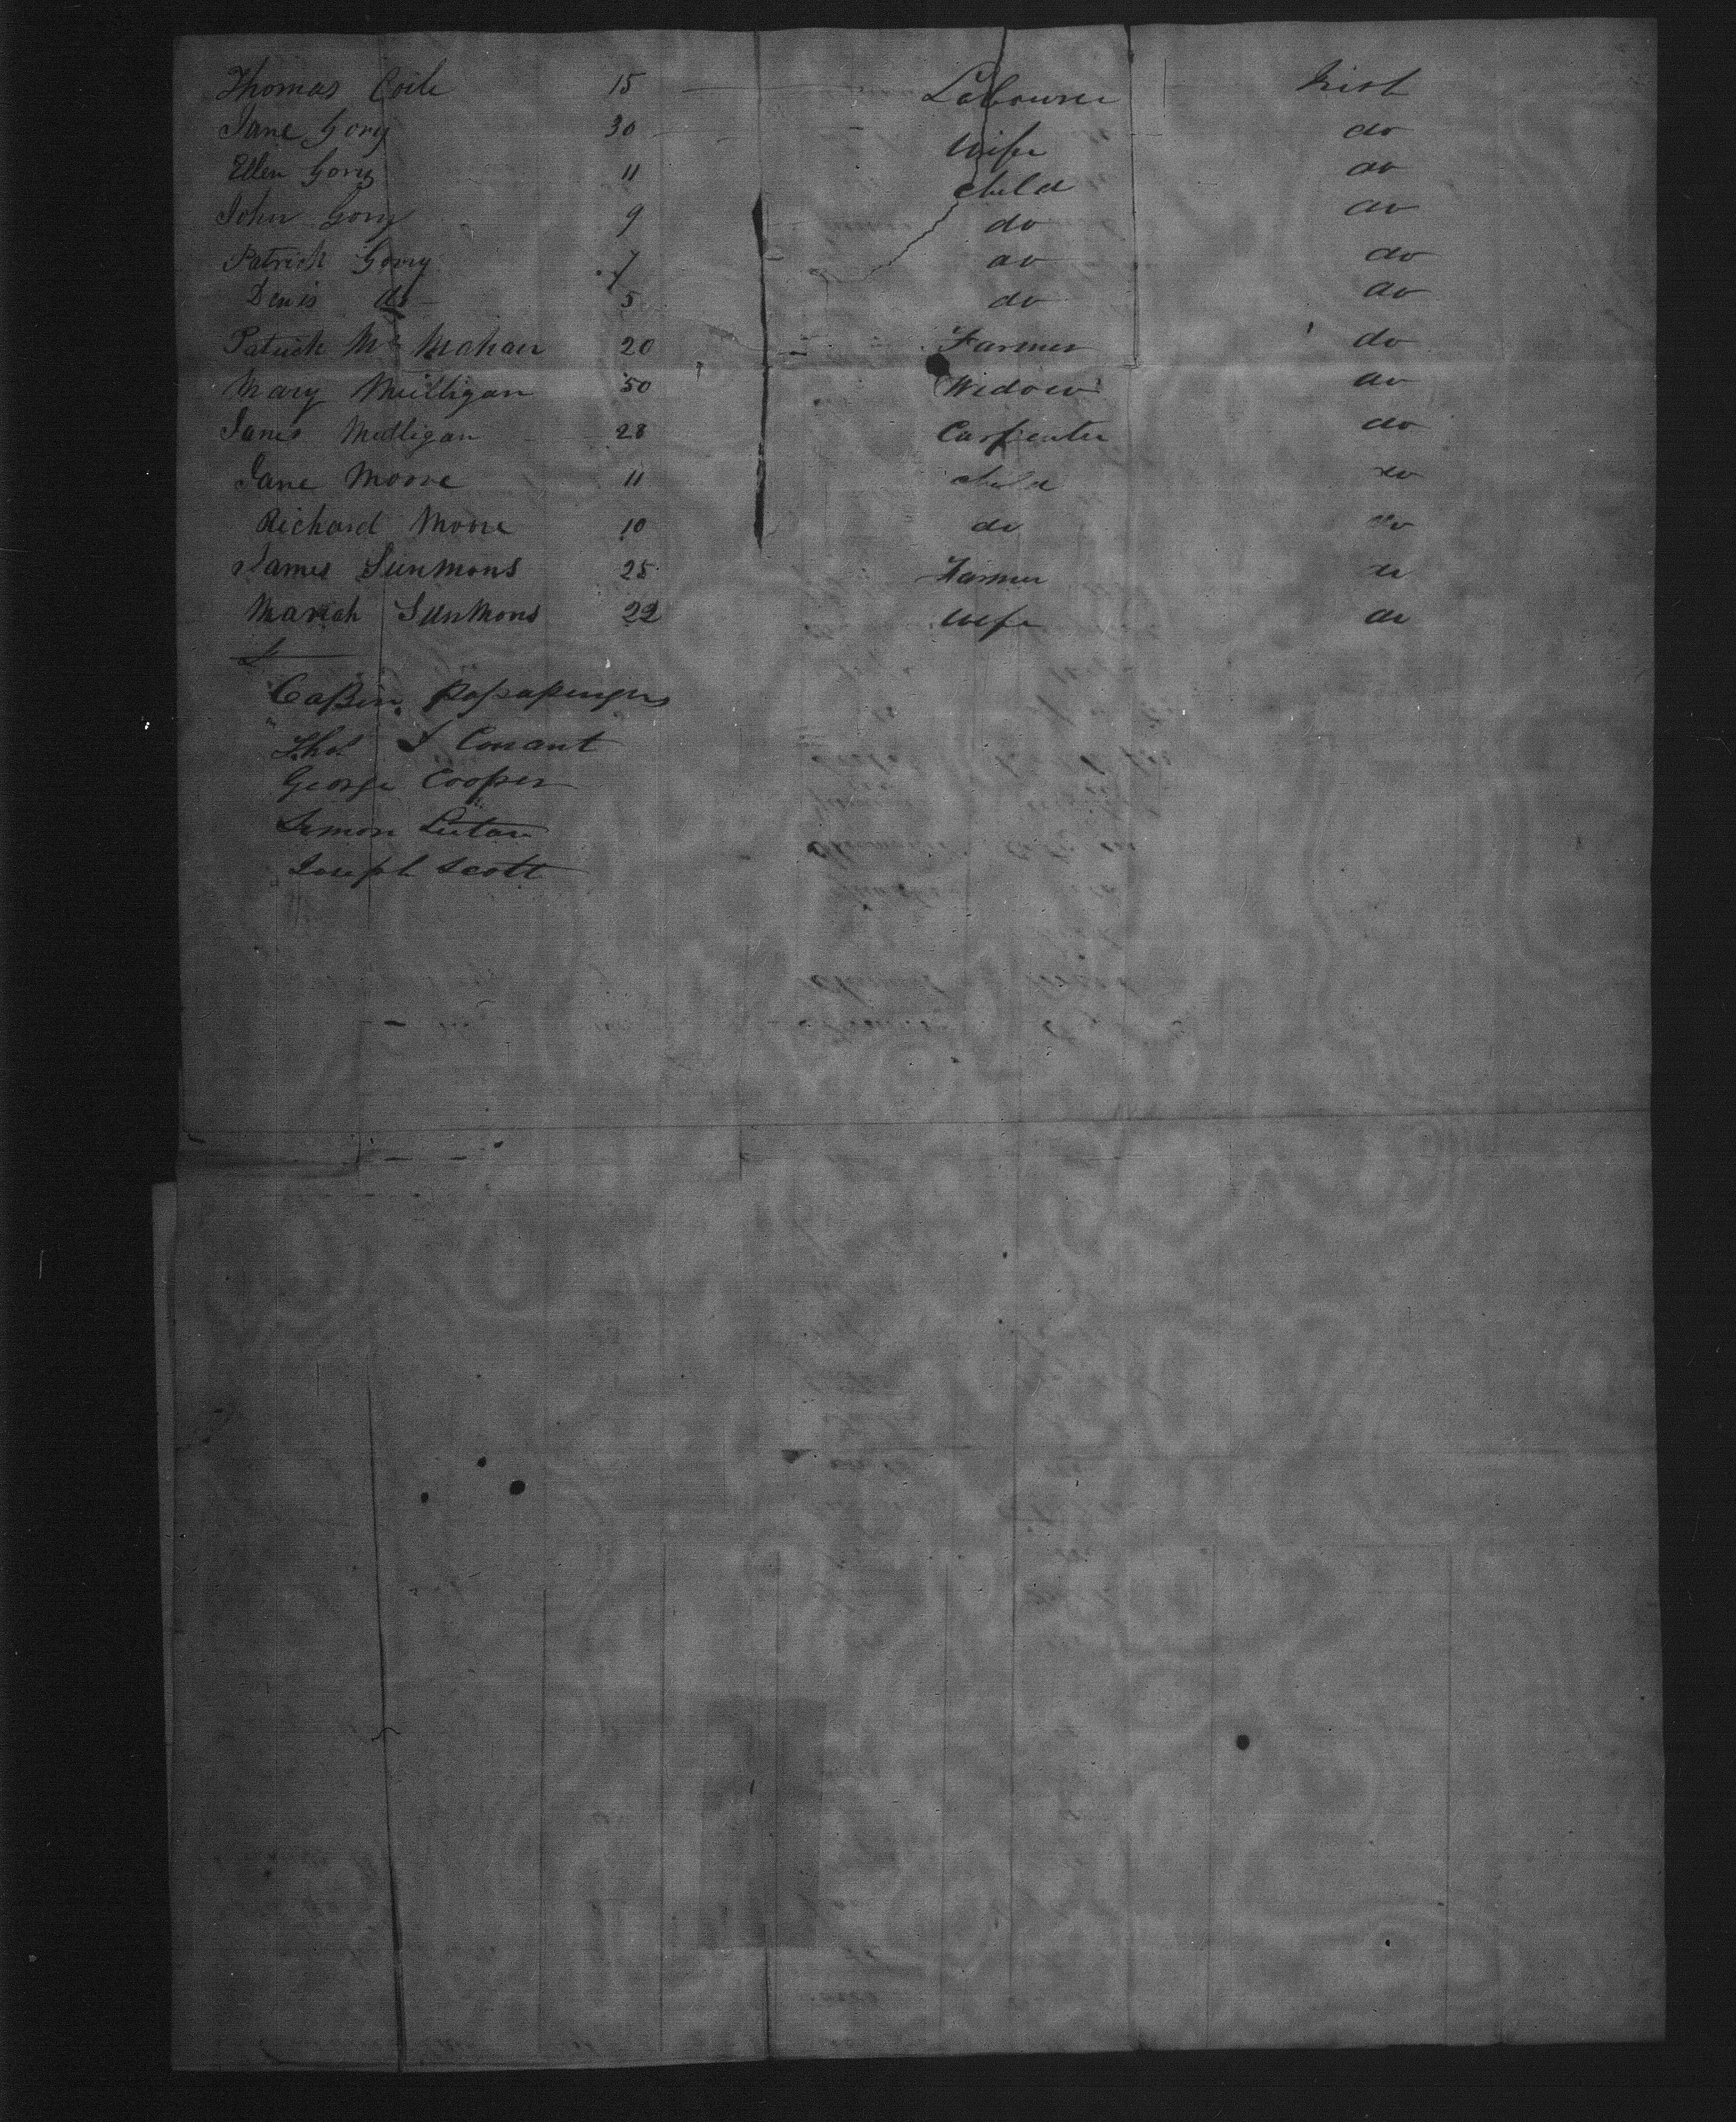 Thomas Coile 15 Labourer Irish
Jane Gory 30 Wife do
Ellen Gory 11 child do
John Gory 9 do do
Patrick Gorry 7 do do
Denis do 5 do do
Patrick Mc Mahan 20 Farmer do
Mary Mulligan 50 Widow do
James Mulligan 28 Carpenter do
Jane Moore 11 child do
Richard Moore 10 do do
James Sunmons 25 Farmer do
Mariah Sunmons 22 wife do
Cassin
Thos S Conant
George Cooper
Simon
Joseph Scott